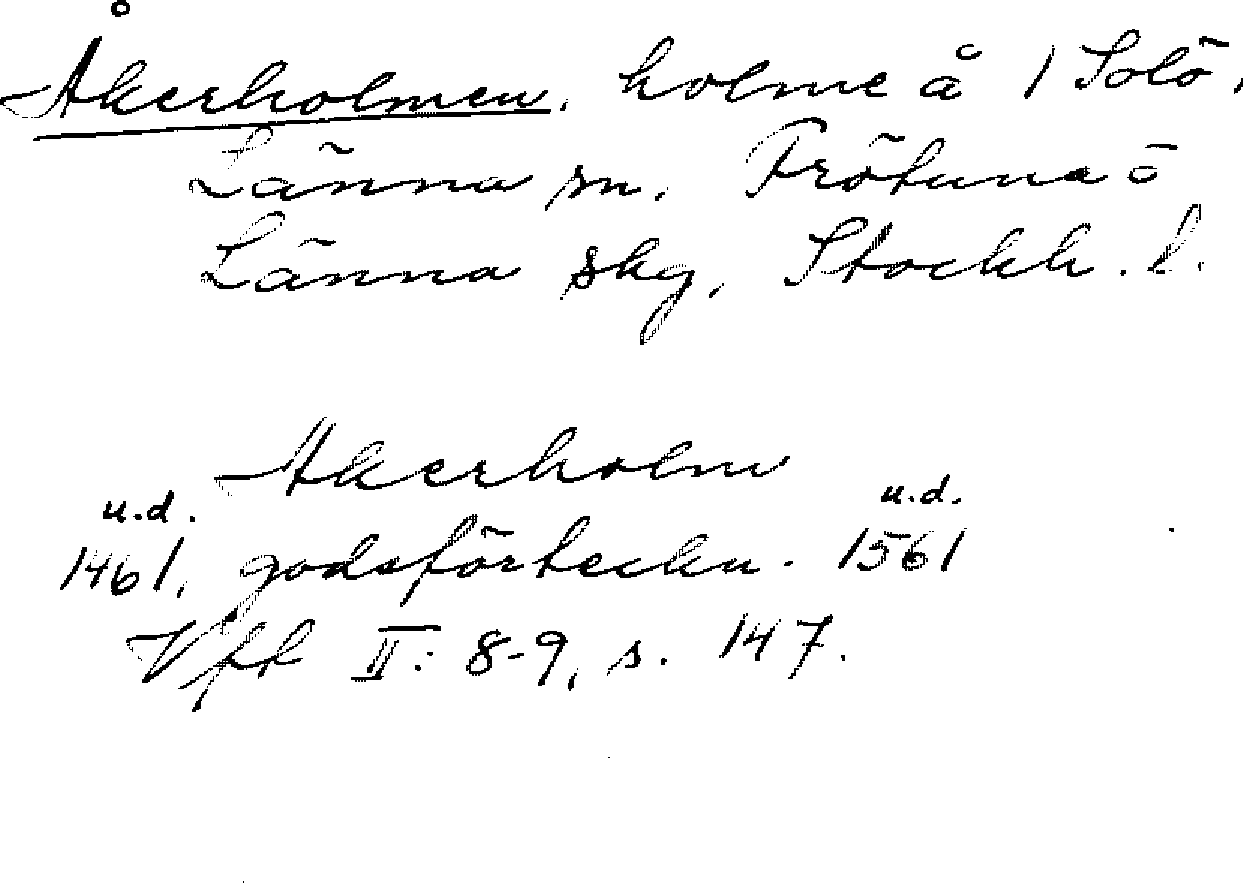 Åkerholmen, holme å 1 Solö,
Länna sn, Frötuna o
Länna skg, Stockh. l.
Akerholm
u.d. u.d.
1461, godsförteckn. 1561
Vff II: 8-9, s. 147.